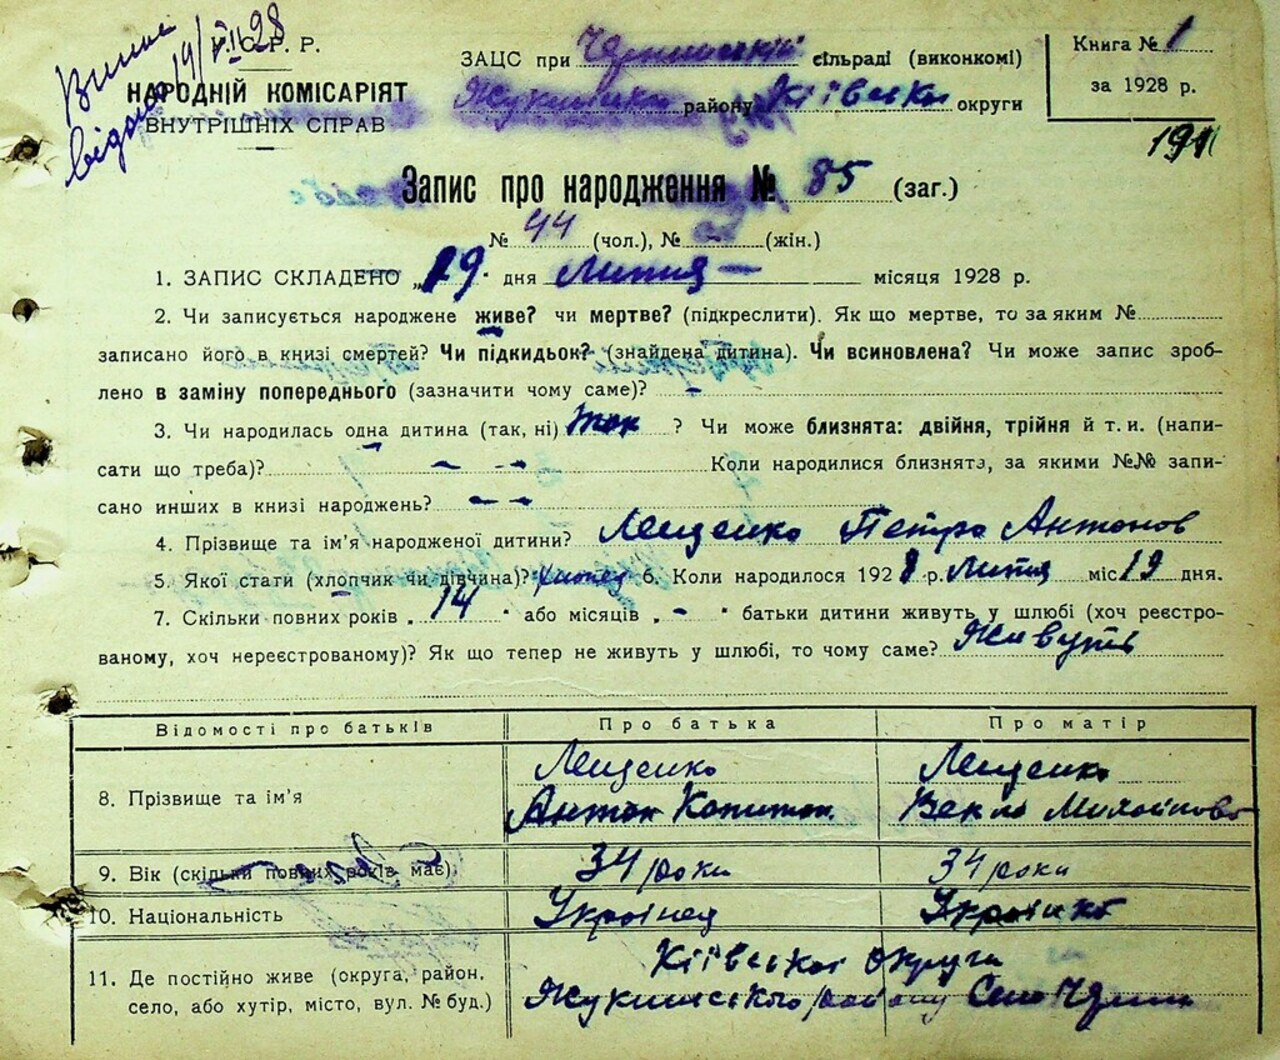 У.С.Р.Р.
НАРОДНІЙ КОМІСАРІЯТ
ВНУТРІШНІХ СПРАВ
ЗАЦС при сільраді (виконкомі)
району Київської округи
Книга № 1
за 1928 р.
Запис про народження № 85 (заг.)
№ 44 (чол.), № (жін.)
1. ЗАПИС СКЛАДЕНО „19“ дня Липня — місяця 1928 р.
2. Чи записується народжене живе? чи мертве? (підкреслити). Як що мертве, то за яким №
записано його в книзі смертей? Чи підкидьок? (знайдена дитина). Чи всиновлена? Чи може запис зроб-
лено в заміну попереднього (зазначити чому саме)? -
3. Чи народилась одна дитина (так, ні) так ? Чи може близнята: двійня, трійня й т. и. (напи-
сати що треба)? — — Коли народилися близнята, за якими №№ запи-
сано инших в книзі народжень? — —
4. Прізвище та ім'я народженої дитини? Лещенко Петро Антонов
5. Якої стати (хлопчик чи дівчина)? хлопец 6. Коли народилося 1928 р. Липня міс 19 дня.
7. Скільки повних років „ 14 “ або місяців „ - “ батьки дитини живуть у шлюбі (хоч реєстро-
ваному, хоч нереєстрованому)? Як що тепер не живуть у шлюбі, то чому саме? Живуть
Відомості про батьків Про батька Про матір
8. Прізвище та ім'я Лещенко Антон Капитон. Лещенко Векла Михайлова
9. Вік (скільки повних років має) 34 роки 34 роки
10. Національність Українец Українка
11. Де постійно живе (округа, район, Київської округи
село, або хутір, місто, вул. № буд.) району Село